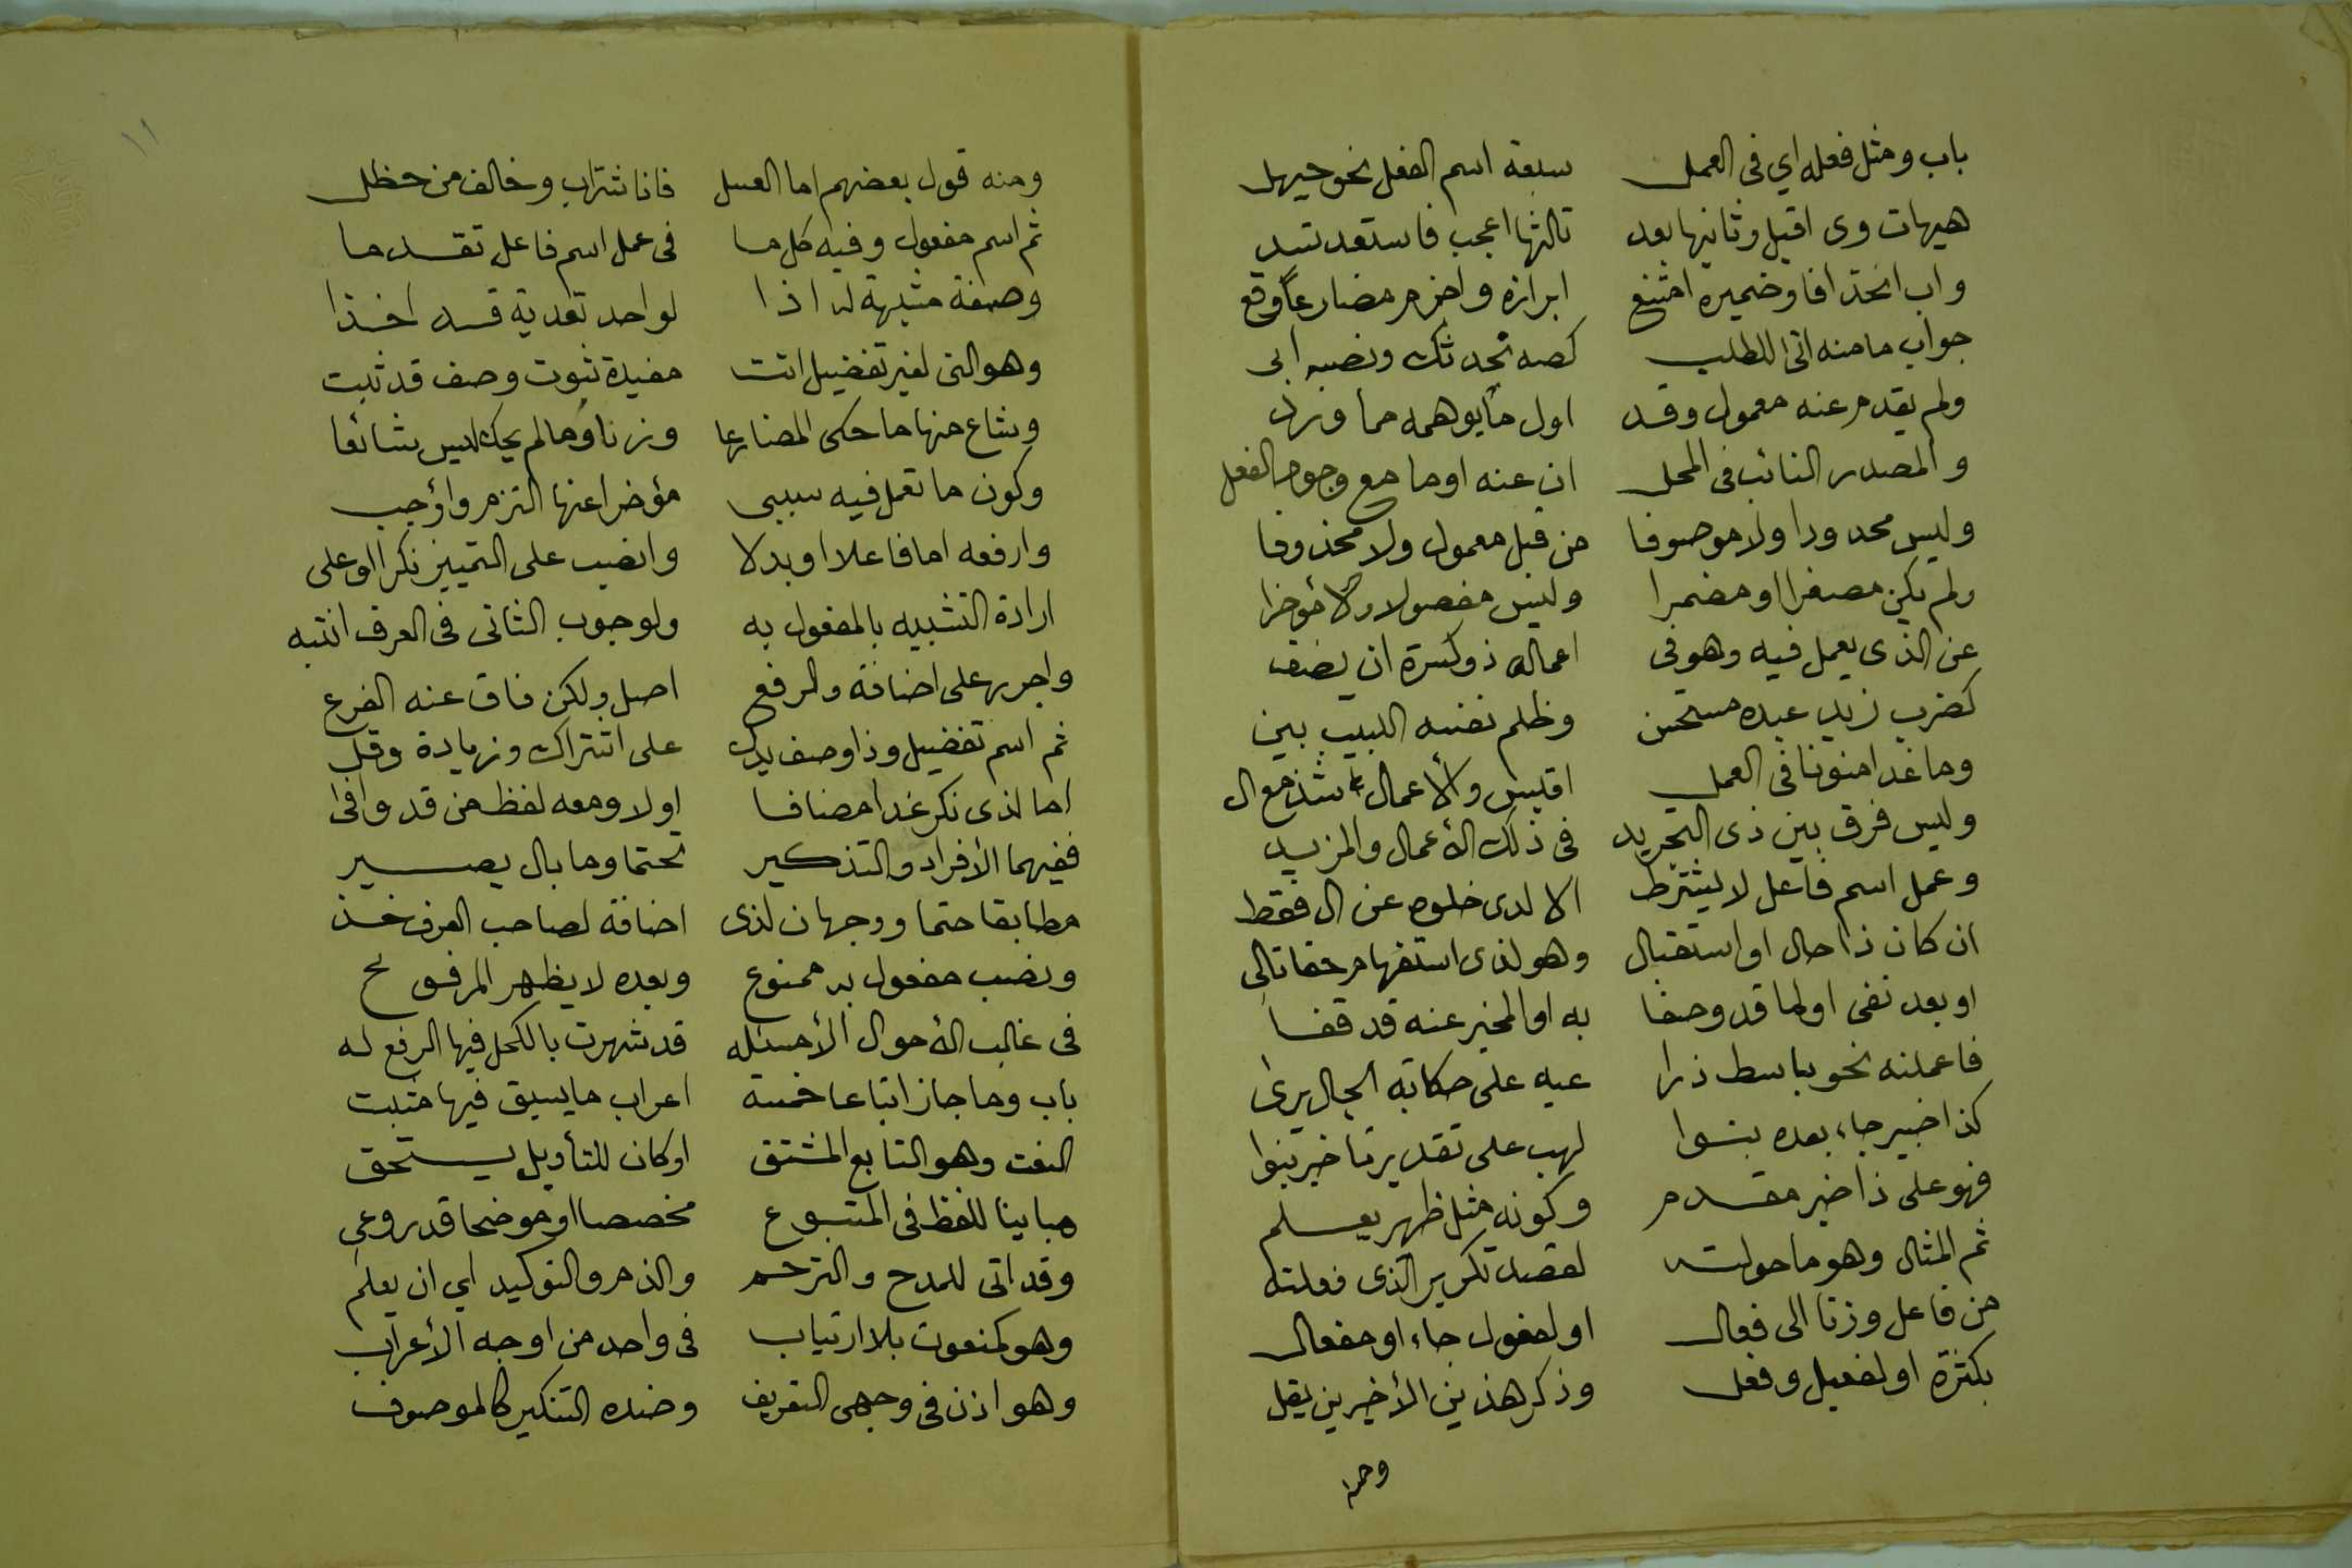 باب ومثل فعله اي في العمل سبعة اسم الفعل نحو حيهل
هيهات وى اقبل وثانيها بعد ثالثها اعجب فاستعد تسد
واب انحذافا وضميره امتنع ابرازه واجزم مضارعاً وقع
جواب ما منه اتى للطلب كصه نحدثك ونصبه ابى
ولم يقدم عنه معمول وقد اول ما يوهمه مما ورد
والمصدر النائب في المحل ان عنه او ما مع وجود الفعل
وليس محدودا ولا موصوفا من قبل معمول ولا محذوفا
ولم يكن مصغرا او مضمرا وليس مفصولا ولا مؤخرا
عن الذى يعمل فيه وهو في اعماله ذو كثرة ان يضف
كضرب زيد عبده مستحسن وظلم نفسه اللبيب بين
وما غدا منونا في العمل اقيس والأعمال شذ مع ال
وليس فرق بين ذى التجريد في ذلك الأعمال والمزيد
وعمل اسم فاعل لا يشترط الا لدى خلوه عن ال فقط
ان كان ذا حال او استقبال وهو لذى استفهام حقا تالى
او بعد نفى او لما قد وصفا به او المخبر عنه قد قفا
فاعملنه نحو باسط ذرا عيه على حكاية الحال يرى
كذا خبير جاء بعده بنوا لهب على تقدير تاخير بنوا
فهو على ذا خبر مقدم وكونه مثل ظهير يعلم
ثم المثال وهو ما حولته لقصد تكرير الذى فعلته
من فاعل وزنا الى فعال او لفعول جاء او مفعال
بكثرة او لفعيل وفعل وذكر هذين الأخيرين يقل
ومنه
١١
ومنه قول بعضهم اما العسل فانا شراب وخالف من حظل
ثم اسم مفعول وفيه كل ما في عمل اسم فاعل تقدما
وصفة مشبهة له اذا لواحد تعدية قد اخذا
وهو التى لغير تفضيل اتت مفيدة ثبوت وصف قد ثبت
وشاع منها ما حكى المضارعا وزنا وما لم يحك ليس شائعا
وكون ما تعمل فيه سببى مؤخرا عنها التزم واوجب
وارفعه اما فاعلا او بدلا وانصب على التمييز نكرا او على
ارادة التشبيه بالمفعول به ولوجوب الثانى فى العرف انتبه
واجرر على اضافة والرفع اصل ولكن فاق عنه الفرع
ثم اسم تفضيل وذا وصف يدل على اشتراك وزيادة وقل
اما لذى نكر غدا مضافا اولا ومعه لفظ من قد وافى
ففيهما الأفراد والتذكير تحتما وما بال يصير
مطابقا حتما ووجهان لذى اضافة لصاحب العرف خذ
ونصب مفعول به ممنوع وبعده لا يظهر المرفوع
فى غالب الأحوال الا مسئله قد شهرت بالكحل فيها الرفع له
باب وما جاز اتباعا خمسة اعراب ما يسبق فيها مثبت
النعت وهو التابع المشتق او كان للتأويل يستحق
مباينا للفظ فى المتبوع مخصصا او موضحا قد روعى
وقد اتى للمدح والترحم والذم والتوكيد اي ان يعلم
وهو كمنعوت بلا ارتياب فى واحد من اوجه الأعراب
وهو اذن فى وجهى التعريف وضده التنكير كالموصوف